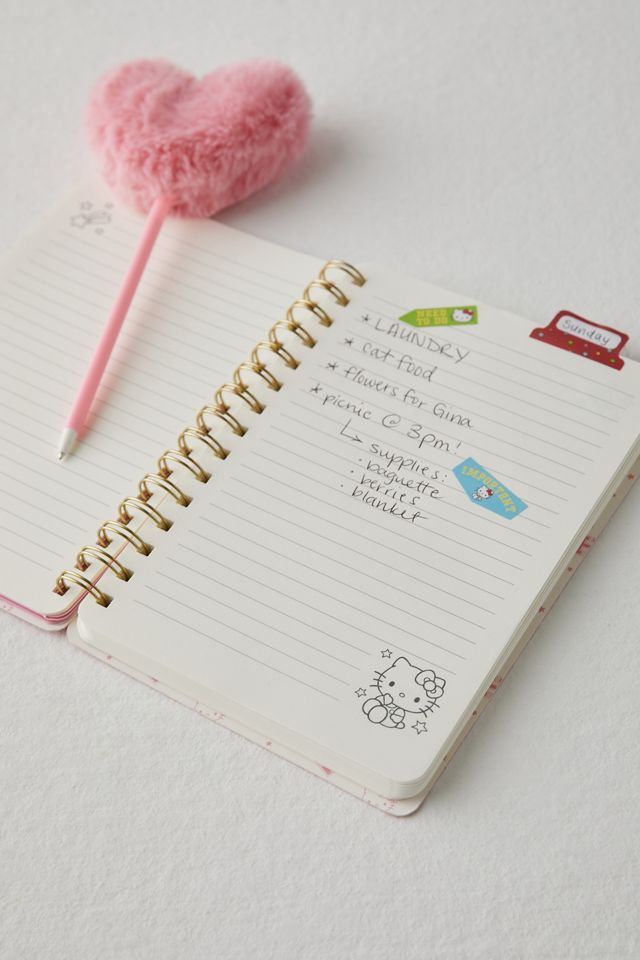 NEED
TO DO
Sunday
* LAUNDRY
* cat food
* flowers for Gina
* picnic @ 3pm!
↳ supplies:
· baguette
· berries
· blanket
IMPORTANT